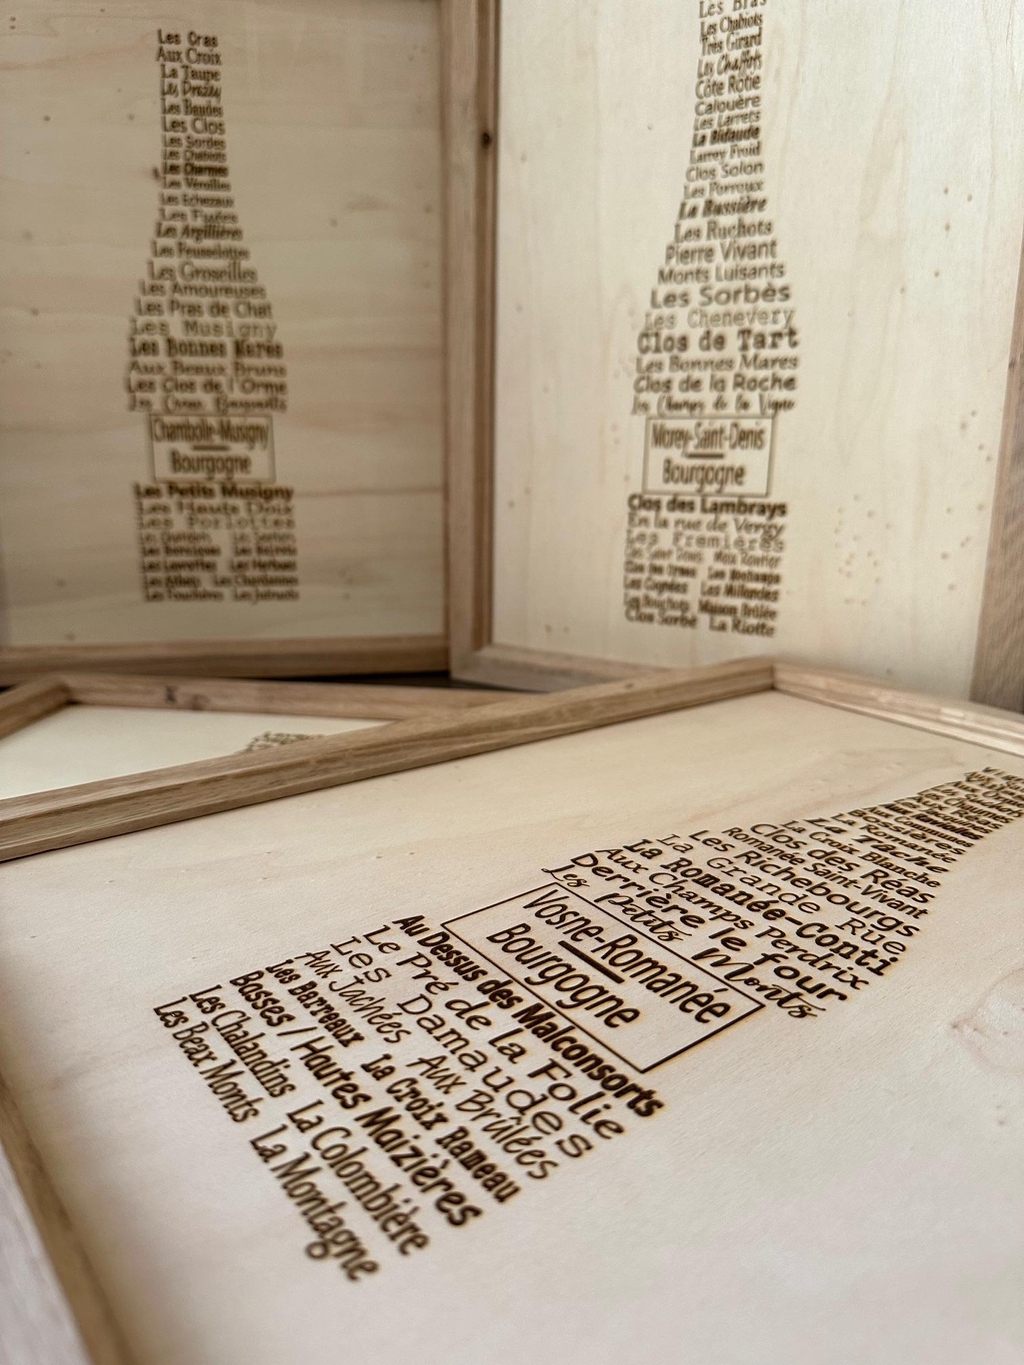 Les Cras
Aux Croix
La Taupe
Les Drazey
Les Baudes
Les Clos
Les Sordes
Les Chabiots
Les Charmes
Les Véroilles
Les Echezeaux
Les Fuées
Les Argillières
Les Feusselottes
Les Groseilles
Les Amoureuses
Les Pras de Chat
Les Musigny
Les Bonnes Mares
Aux Beaux Bruns
Les Clos de l'Orme
Chambolle-Musigny
Bourgogne
Les Petits Musigny
Les Hauts Doix
Les Porlottes
Les Lavrottes Les Herbues
Les Athets Les Chardannes
Les Fouchères Les Jutruots
Les Bras
Les Chabiots
Très Girard
Les Chaffots
Côte Rotie
Calouère
Les Larrets
La Bidaude
Larrey Froid
Clos Solon
Les Porroux
La Bussière
Les Ruchots
Pierre Vivant
Monts Luisants
Les Sorbès
Les Chenevery
Clos de Tart
Les Bonnes Mares
Clos de la Roche
Les Champs de la Vigne
Morey-Saint-Denis
Bourgogne
Clos des Lambrays
En la rue de Vergy
Les Premières
Les Cognées Les Millandes
Les Bouchots Maison Brûlée
Clos Sorbé La Riotte
La Tâche
La Croix Blanche
Clos des Réas
Romanée-Saint-Vivant
Les Richebourgs
La Grande Rüe
La Romanée-Conti
Aux Champs Perdrix
Derrière le four
Les Petits Monts
Vosne-Romanée
Bourgogne
Au Dessus des Malconsorts
Le Pré de la Folie
Les Damaudes
Aux Jachées Aux Brûlées
Les Barreaux La Croix Rameau
Basses / Hautes Maizières
Les Chalandins La Colombière
Les Beax Monts La Montagne